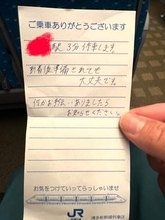 ご乗車ありがとうございます
駅 3分停車します
到着後準備されても
大丈夫です。
何かお手伝いありましたら
お知らせください。
お気をつけていってらっしゃいませ
JR